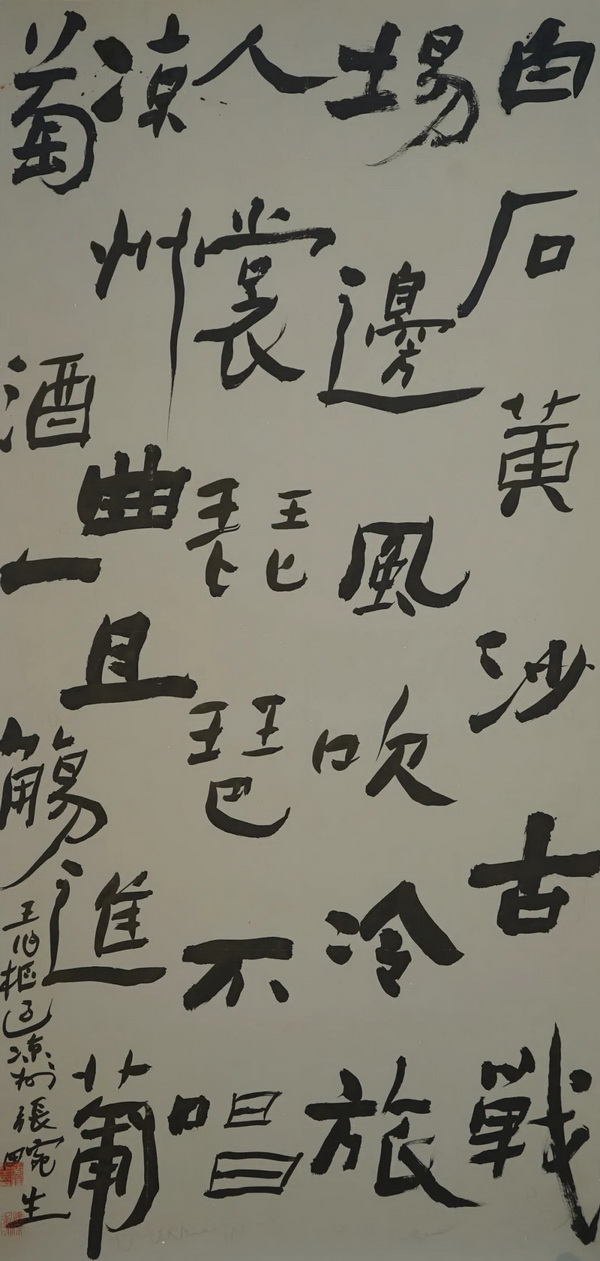 白石黄沙古戰
場邊風吹冷旅
人裳琵琶不唱
涼州曲且進葡
萄酒一觴
王作樞過涼州張畹生